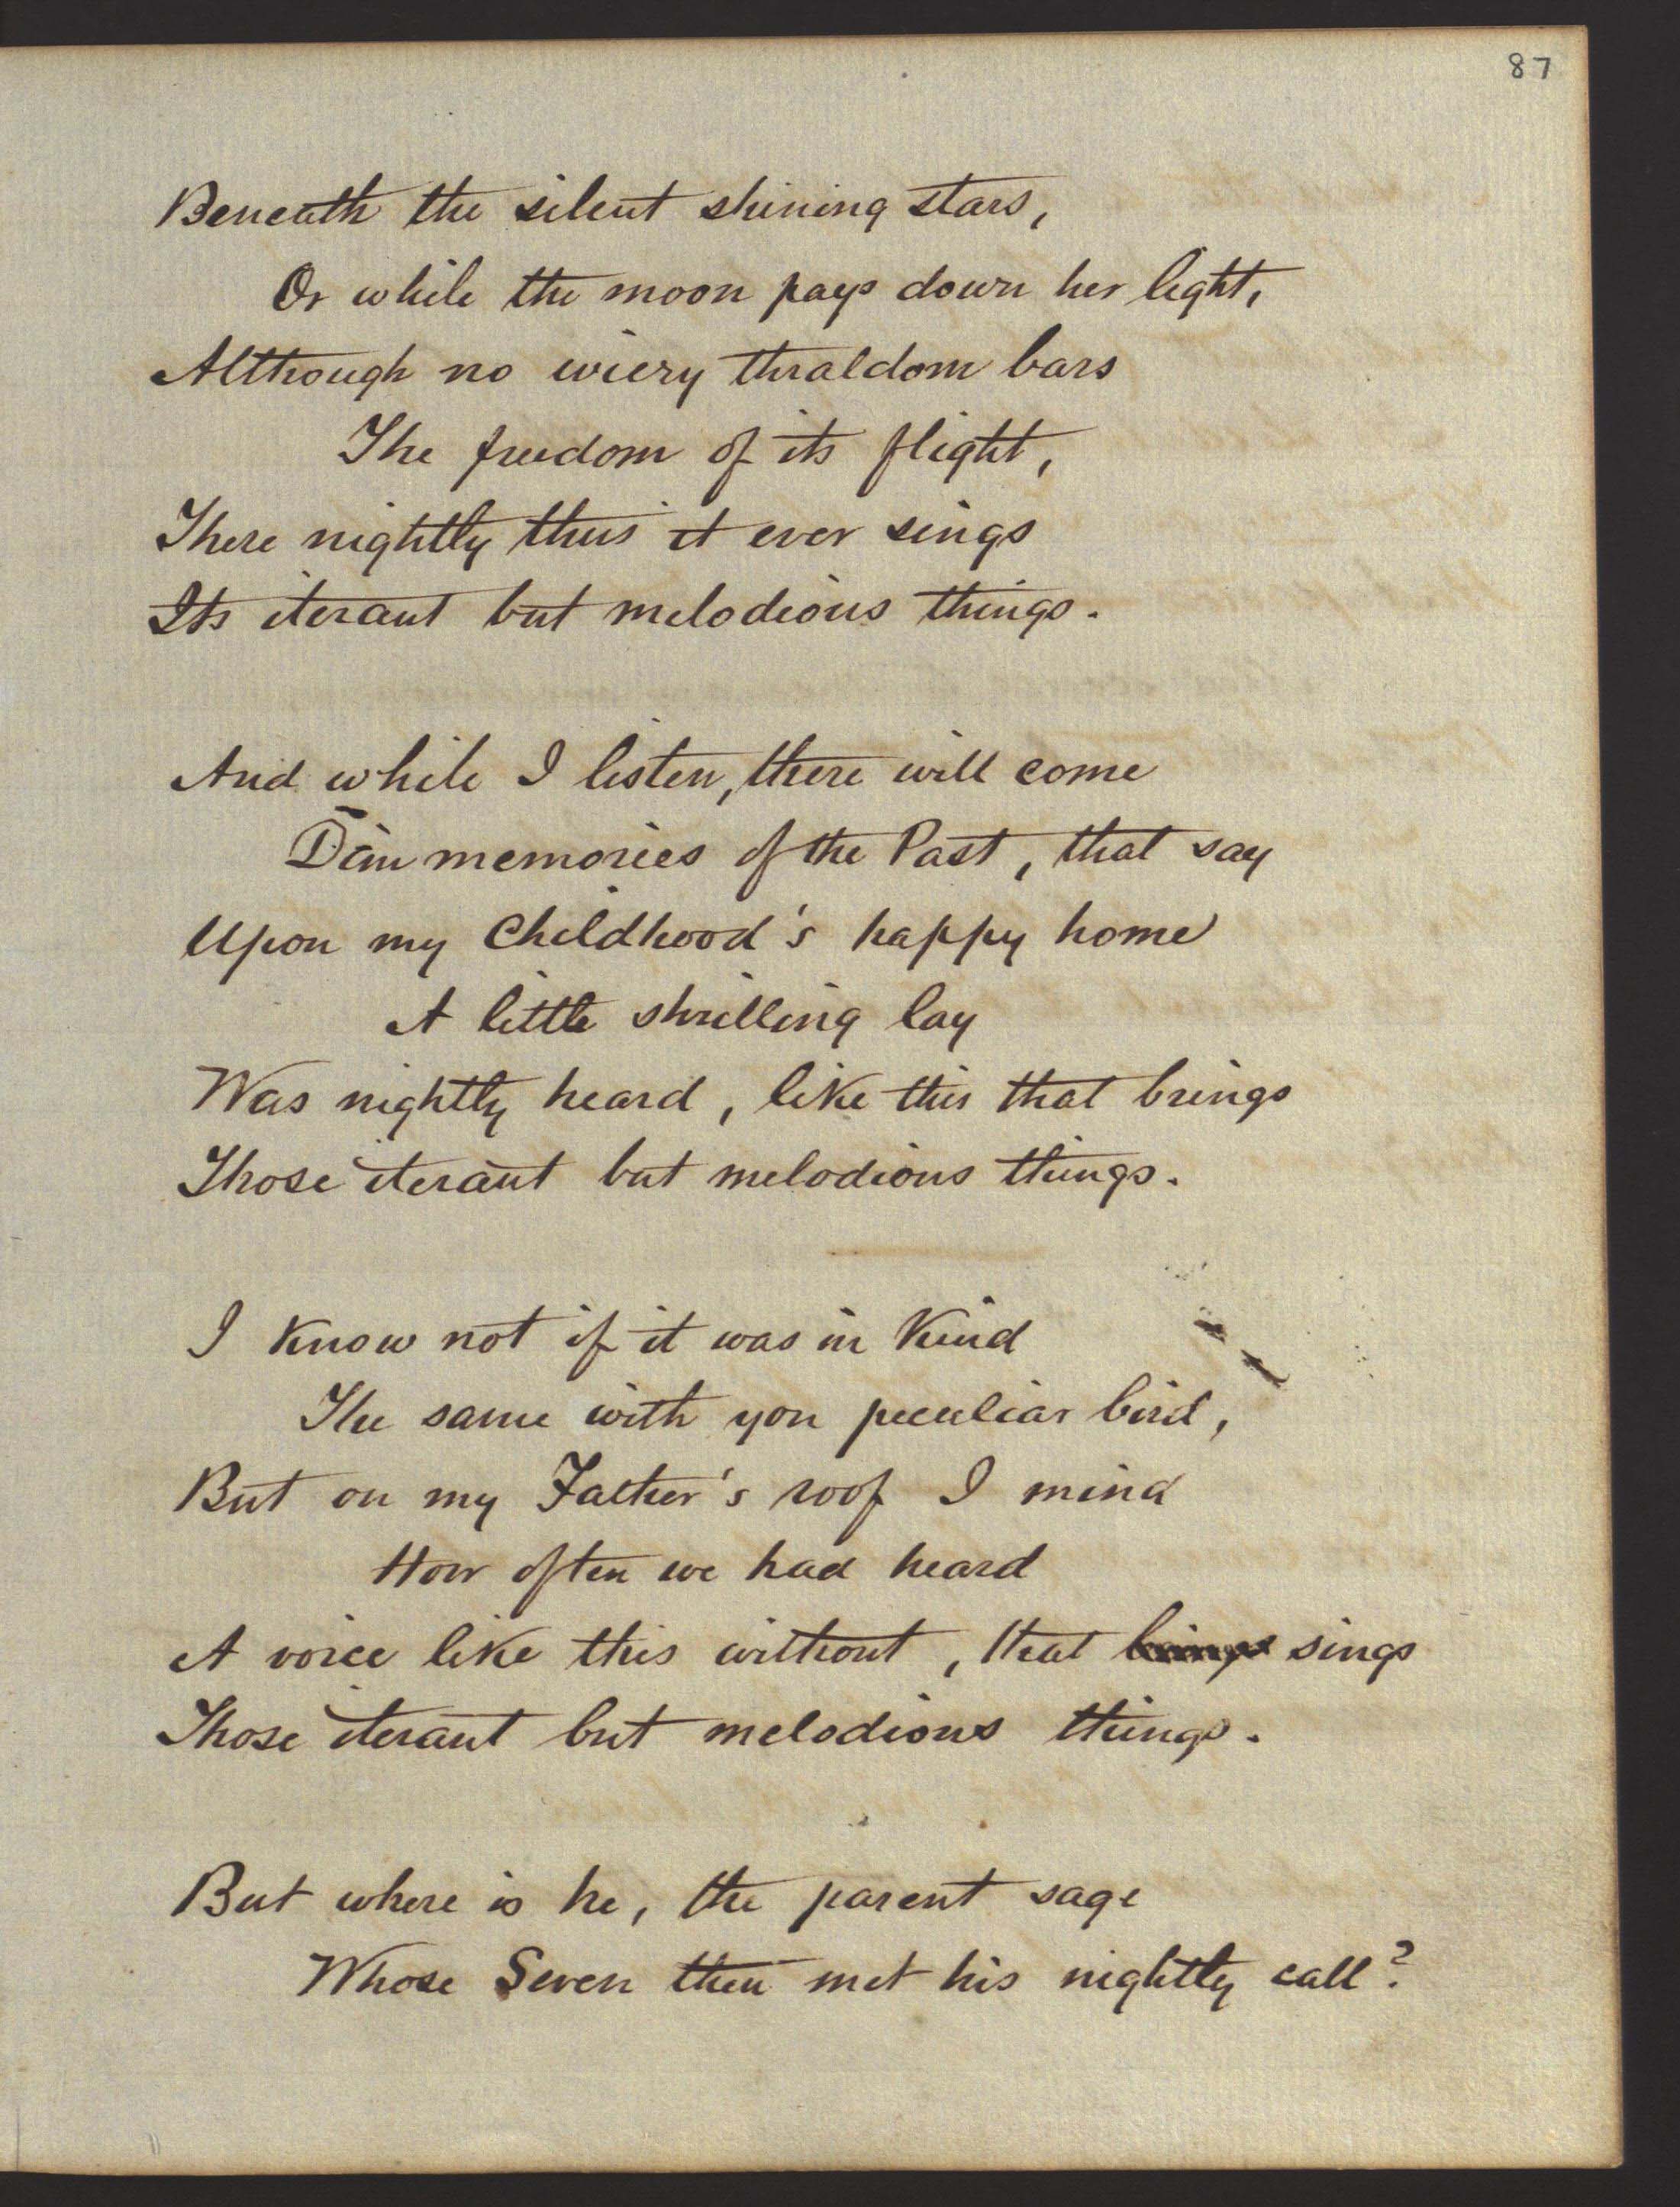 87
Beneath the silent shining stars,
Or while the moon pays down her light,
Although no wiery thraldom bars
The freedom of its flight,
There nightly thus it ever sings
Its iterant but melodious things.
And while I listen, there will come
Dim memories of the Past, that say
Upon my Childhood's happy home
A little shrilling lay
Was nightly heard, like this that brings
Those iterant but melodious things.
I Know not if it was in Kind
The same with yon peculiar bird,
But on my Father's roof I mind
How often we had heard
A voice like this without, that brings sings
Those iterant but melodious things.
But where is he, the parent sage
Whose Seven then met his nightly call?